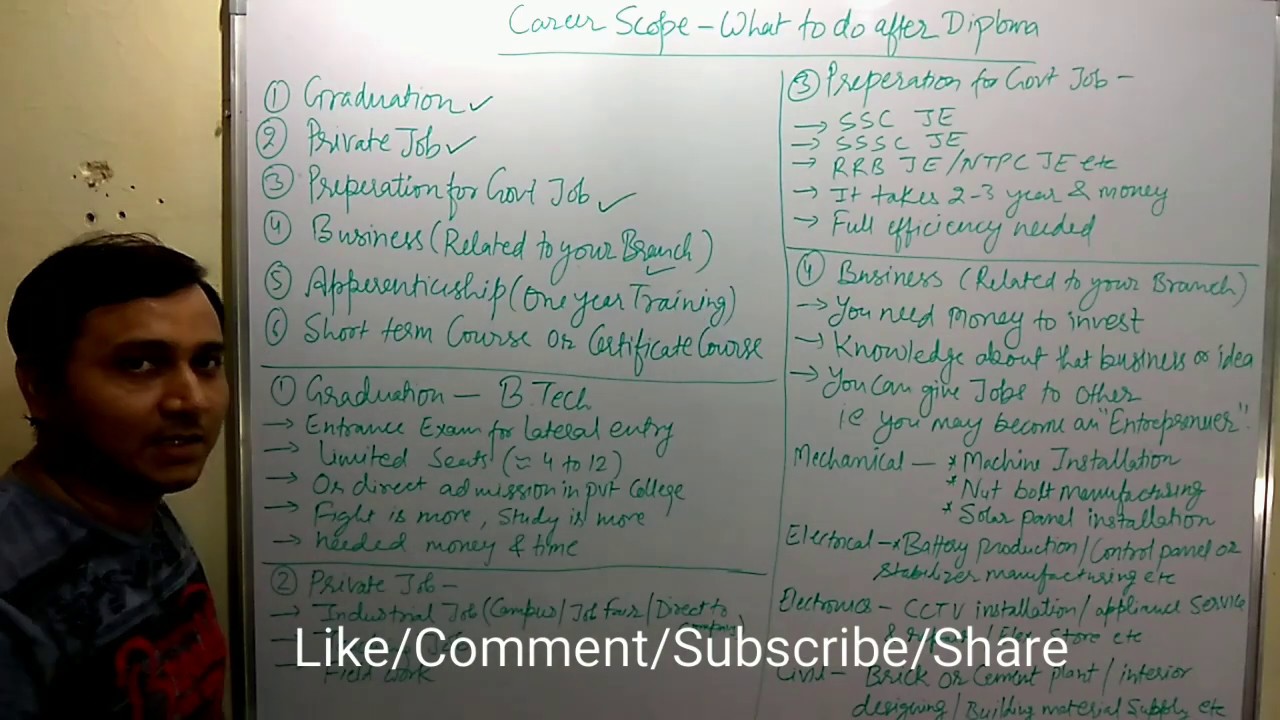 Career Scope - What to do after Diploma
① Graduation ✓
② Private Job ✓
③ Preperation for Govt Job ✓
④ Business (Related to your Branch)
⑤ Apperenticeship (One year Training)
⑥ Short term Course or Certificate Course
① Graduation — B.Tech
→ Entrance Exam for lateral entry
→ Limited Seats (≈ 4 to 12)
→ Or direct admission in pvt College
→ Fight is more, Study is more
→ needed money & time
② Private Job -
→ Industrial Job (Campus/Job fair/Direct to
Field work
③ Preperation for Govt Job -
→ SSC JE
→ SSSC JE
→ RRB JE/NTPC JE etc
→ It takes 2-3 year & money
→ Full efficiency needed
④ Business (Related to your Branch)
→ You need Money to invest
→ Knowledge about that business or idea
→ You can give Jobs to other
ie you may become an "Entreprenuer".
Mechanical — * Machine Installation
* Nut bolt manufacturing
* Solar panel installation
Electrical - * Battery production/Control panel or
Stabilizer manufacturing etc
Electronics - CCTV installation/appliance Service
Store etc
Civil - Brick or Cement plant/interior
designing/Building material Supply etc
Like/Comment/Subscribe/Share